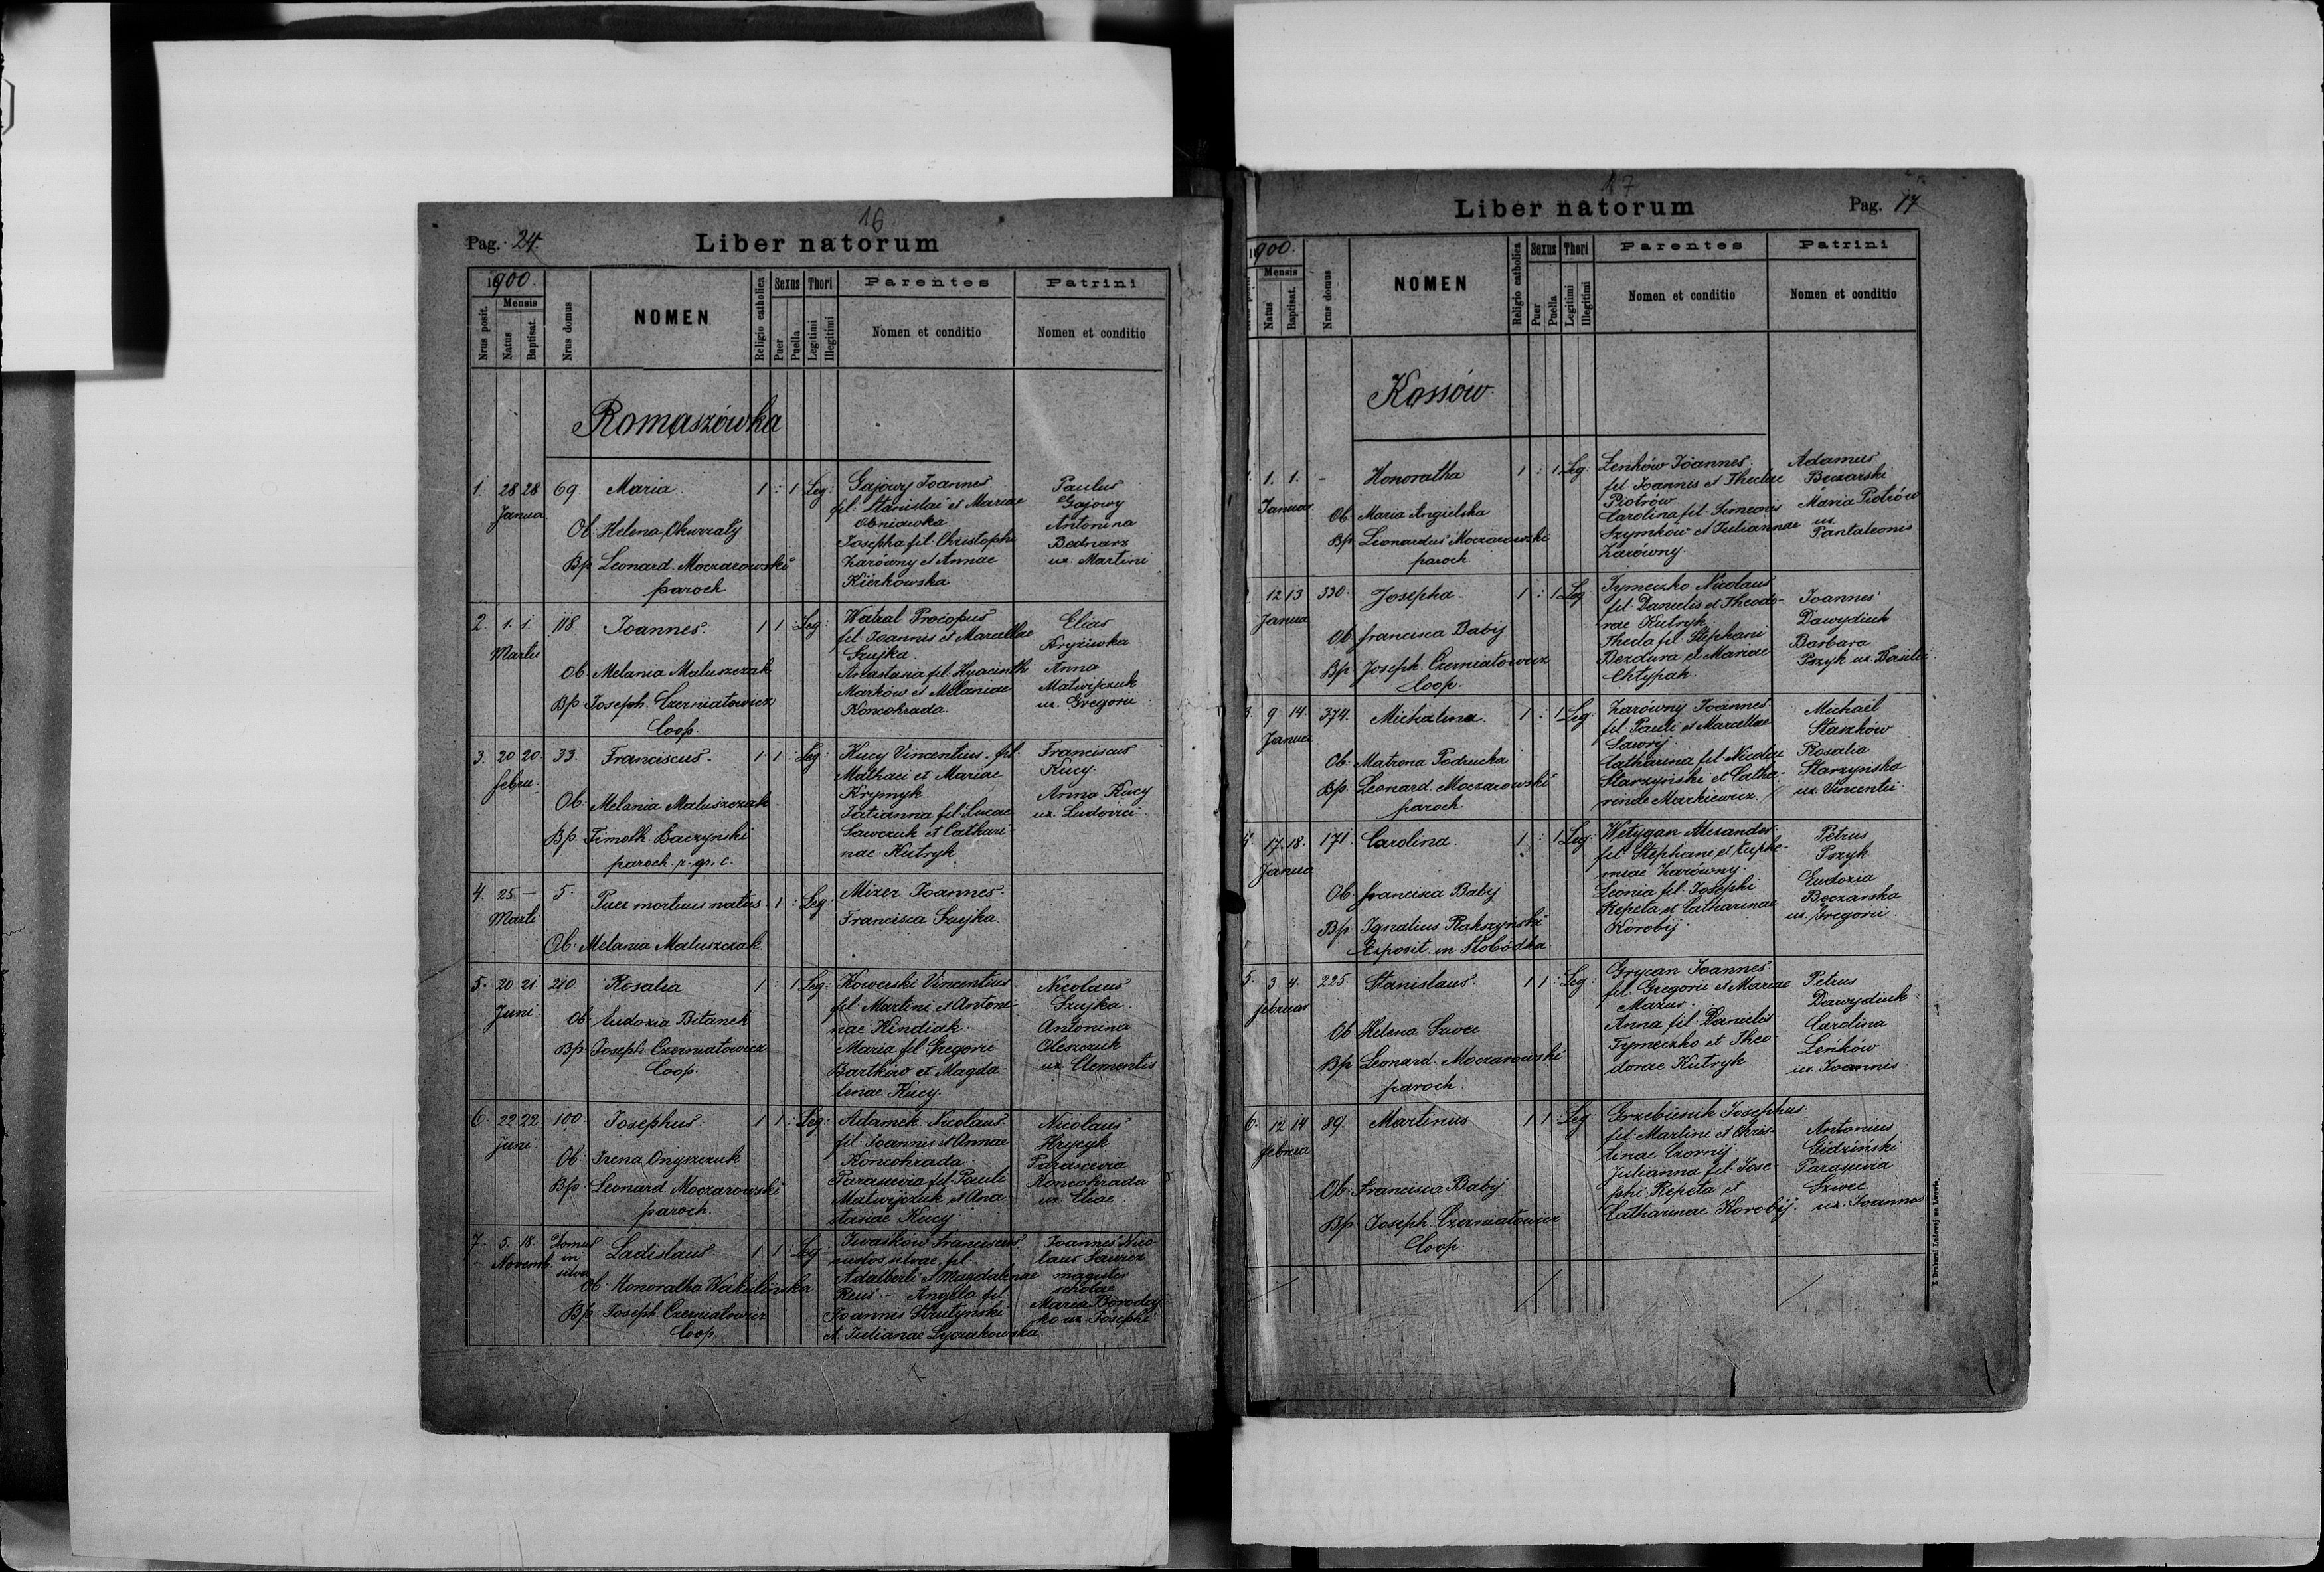 16
Pag. 24.
Liber natorum
1900.
Mensis
Nrus posit.
Natus
Baptisat.
Nrus domus
NOMEN
Religio catholica
Sexus
Puer
Puella
Thori
Legitimi
Illegitimi
Parentes
Nomen et conditio
Patrini
Nomen et conditio
Romaszówka
1. 28 28 69. Maria. 1 : 1 Leg:
Janua
Ob: Helena Okurzaty
Bp Leonard. Moczarowski
paroch
Gajowy Joannes
fil: Stanislai et Mariae
Obniawka
Josepha fil: Christophi
Zarówny et Annae
Kierkowska
Paulus
Gajowy
Antonina
Bednarz
ux. Martini
2. 1. 1. 118 Joannes. 1 1 : Leg:
Martii
Ob Melania Maluszczak
Bp Joseph. Czerniatowicz
Coop.
Watral Procopius
fil: Joannis et Marcellae
Szujka.
Anastasia fil. Hyacinthi
Marków et Melaniae
Koncohrada.
Elias
Kryziwka
Anna
Matwijczuk
ux. Gregorii
3. 20 20 33. Franciscus. 1 1 : Leg:
febru.
Ob: Melania Maluszczak
Bp. Timoth. Baczynski
paroch. r. gr. c.
Kucy Vincentius. fil:
Mathaei et Mariae
Krymyk.
Tatianna fil Lucae
Sawczuk et Cathari-
nae Kutryk
Franciscus
Kucy.
Anna Kucy
ux. Ludovici
4. 25 — 5. Puer mortuus natus. 1 : Leg:
Marti
Ob. Melania Maluszczak.
Mizer Joannes.
Francisca Szujka
5. 20 21 210. Rosalia 1 : 1 Leg:
Juni
Ob. Eudoxia Bitanek
Bp Joseph. Czerniatowicz
Coop.
Kowerski Vincentius
fil: Martini et Antoni-
nae Kindiak.
Maria fil Gregorii
Bartków et Magda-
lenae Kucy.
Nicolaus
Szujka.
Antonina
Oleszczuk
ux. Clementis
6. 22 22 100. Josephus. 1 1 : Leg:
juni
Ob: Irena Onyszczuk
Bp. Leonard. Moczarowski
paroch.
Adamek Nicolaus
fil: Joannis et Annae
Koncohrada.
Parascevia fil. Pauli
Matwijczuk et Ana-
stasiae Kucy.
Nicolaus
Hrycyk
Parascevia
Koncohrada
ux Eliae
7. 5. 18. Domus in silva Ladislaus. 1 1 : Leg:
Novemb.
Ob. Honoratha Wakulinska
Bp. Joseph. Czerniatowicz
Coop.
Iwasków Franciscus
custos silvae, fil.
Adalberti et Magdalenae
Reus. - Angela fil.
Joannis Strutynski
et Julianae Lyczakowska
Joannes Nico-
laus Sawicz
magister
scholae
Maria Borodaj-
ko ux. Josephi
17
Liber natorum
Pag. 17
1900.
Mensis
Natus
Baptisat.
Nrus domus
NOMEN
Religio catholica
Sexus
Puer
Puella
Thori
Legitimi
Illegitimi
Parentes
Nomen et conditio
Patrini
Nomen et conditio
Kossów.
1. 1. - Honoratha 1 : 1 Leg:
Januar
Ob. Maria Angielska
Bp. Leonardus Moczarowski
paroch
Leńków Joannes
fil. Joannis et Theclae
Piotrów
Carolina fil. Simeonis
Szymków et Juliannae
Zarówny.
Adamus
Beczarski
Maria Piotrów
ux.
Pantaleonis
12 13 330. Josepha. 1 : 1 Leg
Janua
Ob. francisca Babij
Bp. Joseph. Czerniatowicz
Coop.
Tymeczko Nicolaus
fil. Danielis et Theodo-
rae Kutryk
Thecla fil. Stephani
Bezdura et Mariae
Chtypah.
Joannes
Dawydiuk
Barbara
Pszyk ux. Basilii
3. 9 14. 374. Michalina. 1 : 1 Leg:
Janua
Ob. Matrona Podzucka
Bp. Leonard. Moczarowski
paroch.
Zarówny Joannes
fil. Pauli et Marcellae
Lawrij.
Catharina fil. Nicolai
Starzyński et Catha-
renae Markiewicz.
Michaël
Staszków
Rosalia
Starzyńska
ux. Vincentii
4. 17. 18. 171. Carolina. 1 : 1 Leg:
Janua
Ob. francisca Babij
Bp. Ignatius Rakszyński
Exposit. in Stobódka
Wetygan Alexander.
fil Stephani et Euphe-
miae Zarówny.
Leonia fil. Josephi
Repeta et Catharinae
Korobij.
Petrus
Pszyk
Eudoxia
Beczarska
ux. Gregorii.
5. 3 4. 225. Stanislaus. 1 1 : Leg:
februar
Ob Helena Szwec
Bp Leonard. Moczarowski
paroch.
Grycan Joannes
fil. Gregorii et Mariae
Mazur.
Anna fil. Danielis
Tymeczko et Theo-
dorae Kutryk
Petrus
Dawydiuk
Carolina
Leńków
ux. Joannis.
6. 12 14 89. Martinus 1 1 : Leg:
februa
Ob. Francisca Babij
Bp. Joseph. Czerniatowicz
Coop
Grzebieniuk Josephus.
fil. Martini et Chris-
tinae Czornij.
Julianna fil. Jose-
phi Repeta et
Catharinae Korobij.
Antonius
Gidziński
Parascevia
Szwec
ux. Joannis
Z Drukarni Ludowej we Lwowie.